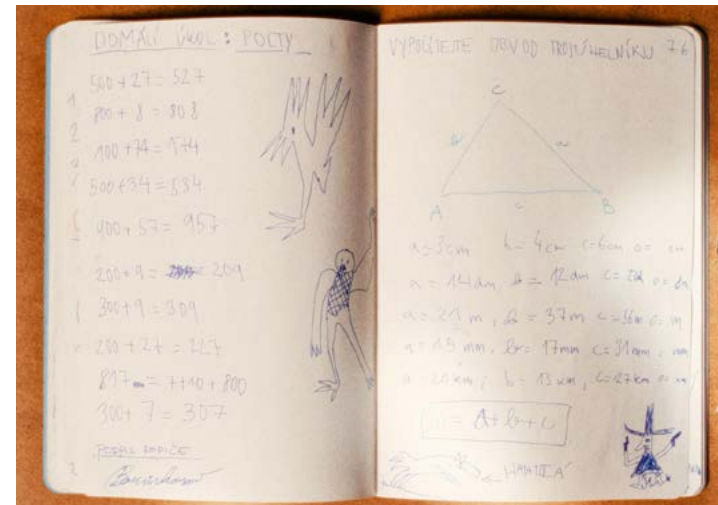 DOMÁCÍ ÚKOL: POČTY
500 + 27 = 527
800 + 8 = 808
500 + 34 = 534
900 + 57 = 957
200 + 9 = 209
300 + 9 = 309
817 = 7+10+800
300 + 7 = 307
PODPIS RODIČE
VYPOČÍTEJTE OBVOD TROJÚHELNÍKU 76
C
b a
c
A B
a = 3cm b = 4cm c = 6cm o = cm
a = 14dm, b = 12dm c = o = dm
a = 21 m, b = 37m c = o = m
a = 19 mm, b = 17mm c = 31mm, mm
a = 20km, b = 13km, c = 27km o =
= A+b+c